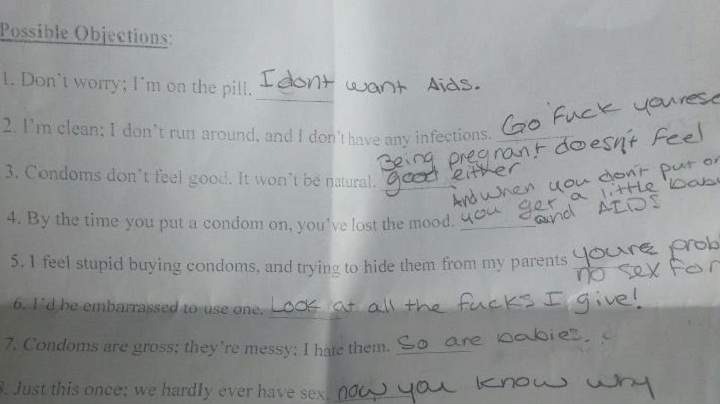 Possible Objections:
1. Don't worry; I'm on the pill. I dont want Aids.
2. I'm clean; I don't run around, and I don't have any infections. Go Fuck
3. Condoms don't feel good. It won't be natural. Being pregnant doesn't feel
good either
4. By the time you put a condom on, you've lost the mood. And when you don't put
you get a little
and AIDS
5. I feel stupid buying condoms, and trying to hide them from my parents youre
no sex for
6. I'd be embarrassed to use one. Look at all the fucks I give!
7. Condoms are gross; they're messy; I hate them. So are babies.
8. Just this once; we hardly ever have sex. now you know why